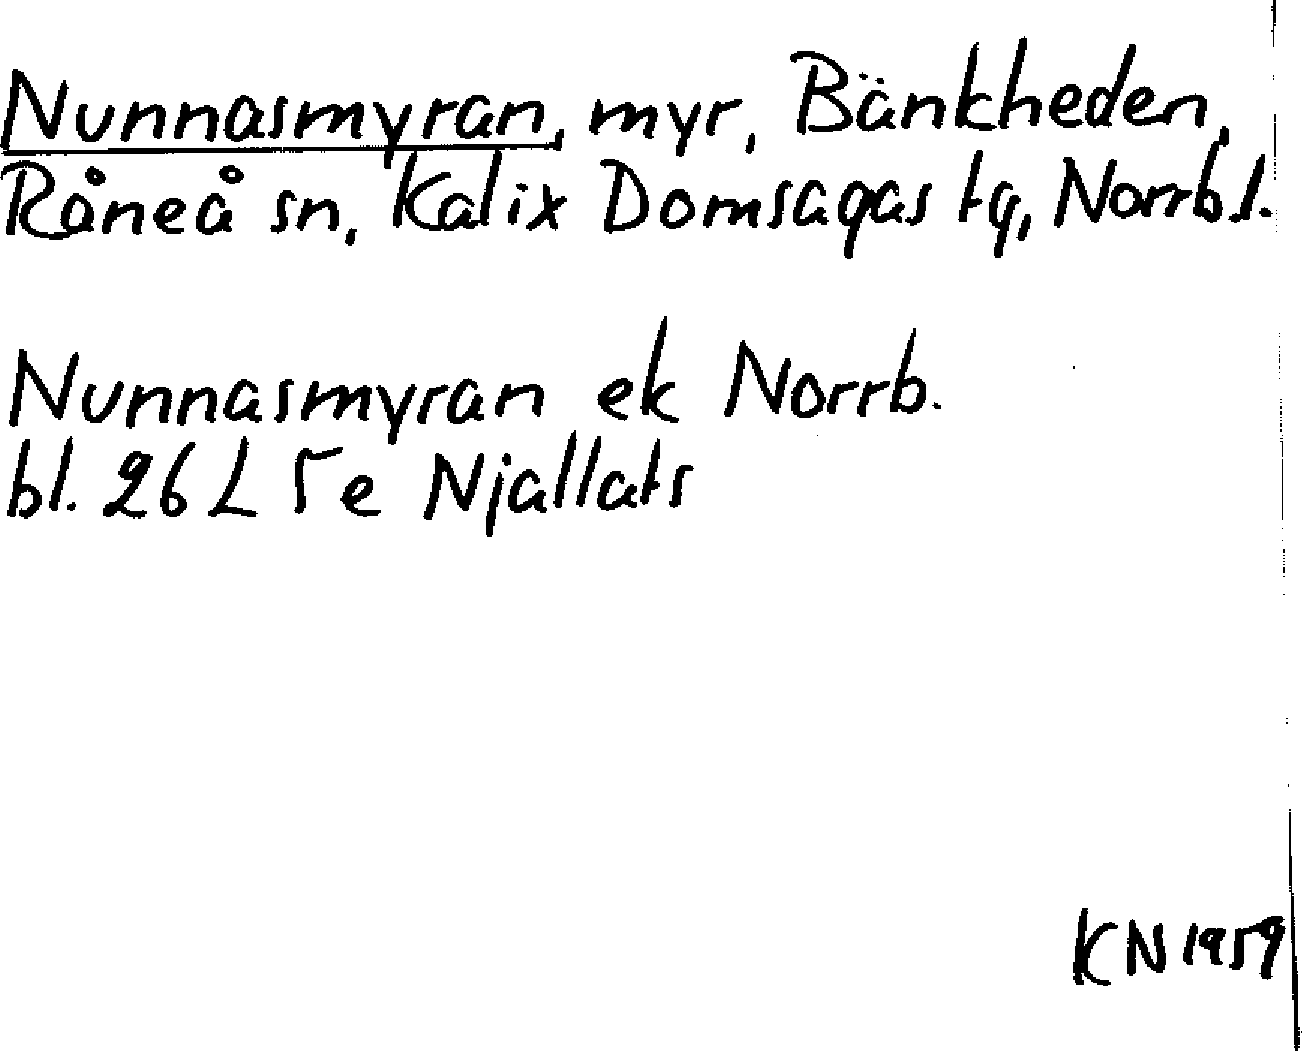 Nunnasmyran, myr, Bänkheden,
Råneå sn, Kalix Domsagas tg, Norrb.l.
Nunnasmyran ek Norrb.
bl. 26 L 5e Njallats
KN 1959